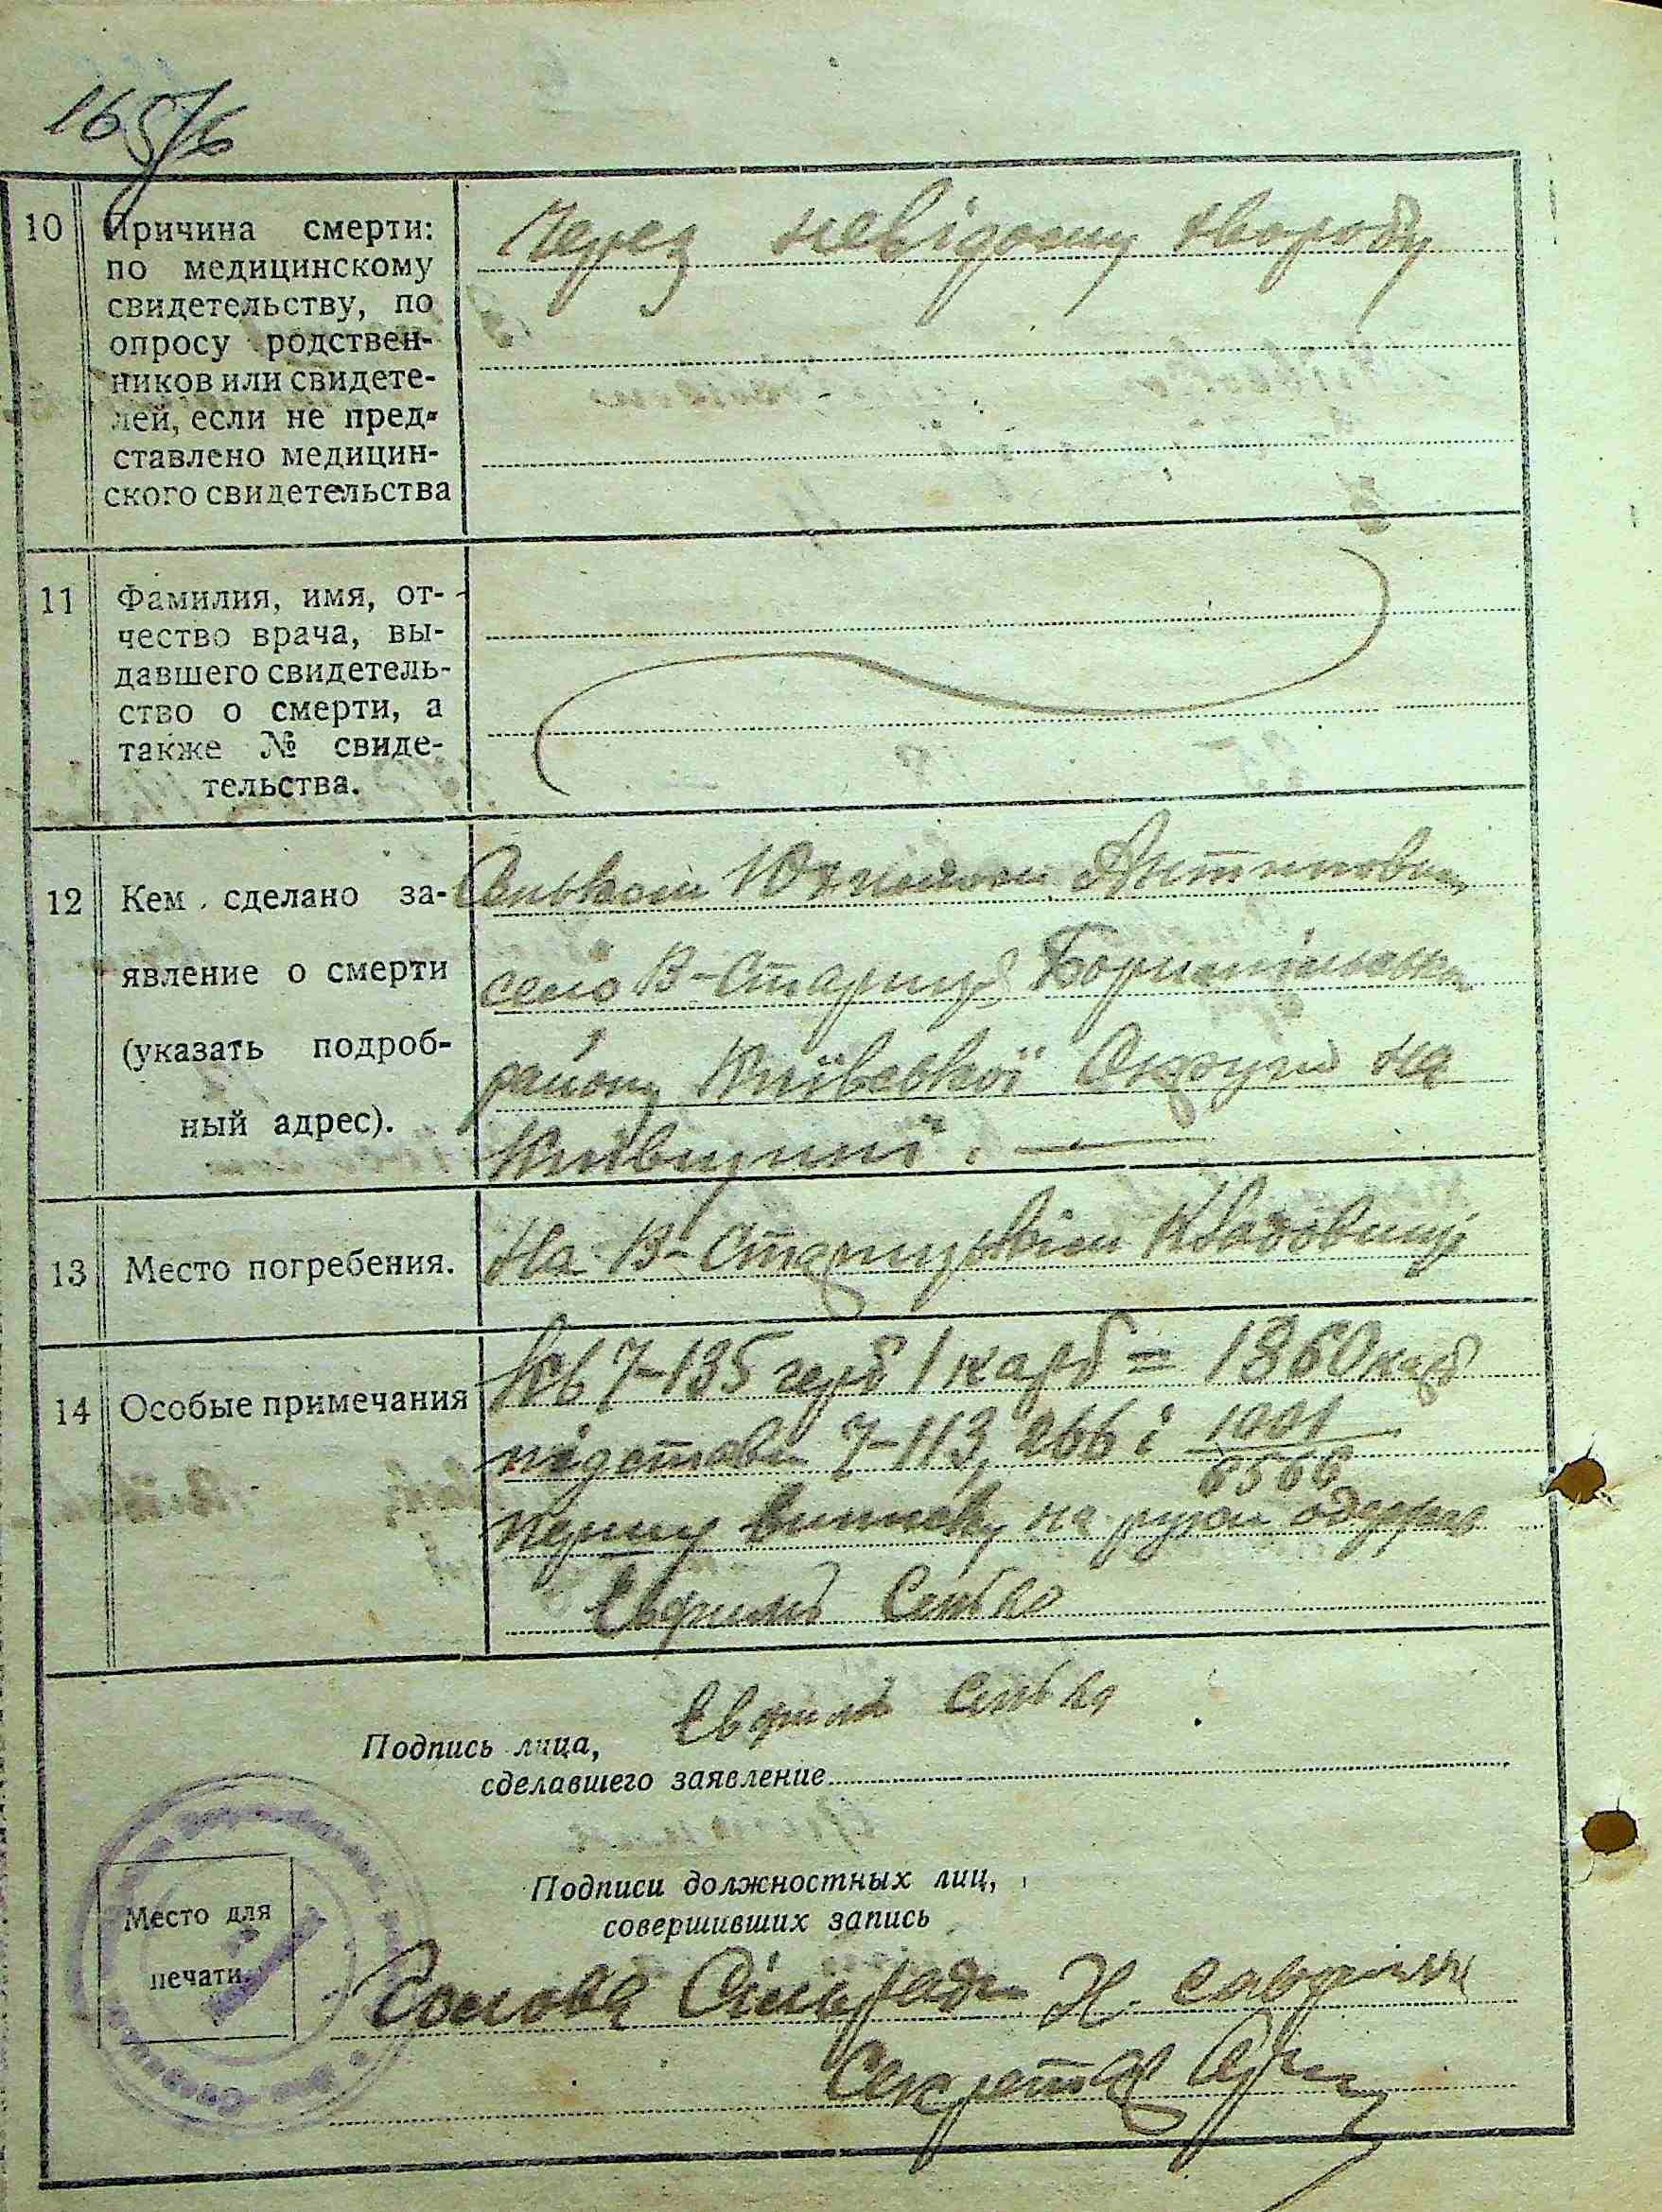 165/6
10 Причина смерти:
по медицинскому
свидетельству, по
опросу родствен-
ников или свидете-
лей, если не пред-
ставлено медицин-
ского свидетельства
Через невідому хворобу
11 Фамилия, имя, от-
чество врача, вы-
давшего свидетель-
ство о смерти, а
также № свиде-
тельства.
12 Кем сделано за-
явление о смерти
(указать подроб-
ный адрес).
село В-Стариця Бориспільськ
району Київської Округи на
Київщині.
13 Место погребения.
На В-Старицькім Кладовищі
14 Особые примечания
7-135 герб 1 карб = 1360 карб
підстави 7-113, 266 і 1001/6566
першу виписку на руки одержав
Евфимій Сенько
Евфимій Сенько
Подпись лица,
сделавшего заявление
Место для
печати.
Подписи должностных лиц,
совершивших запись
Голова Сільради Н.
Секретар